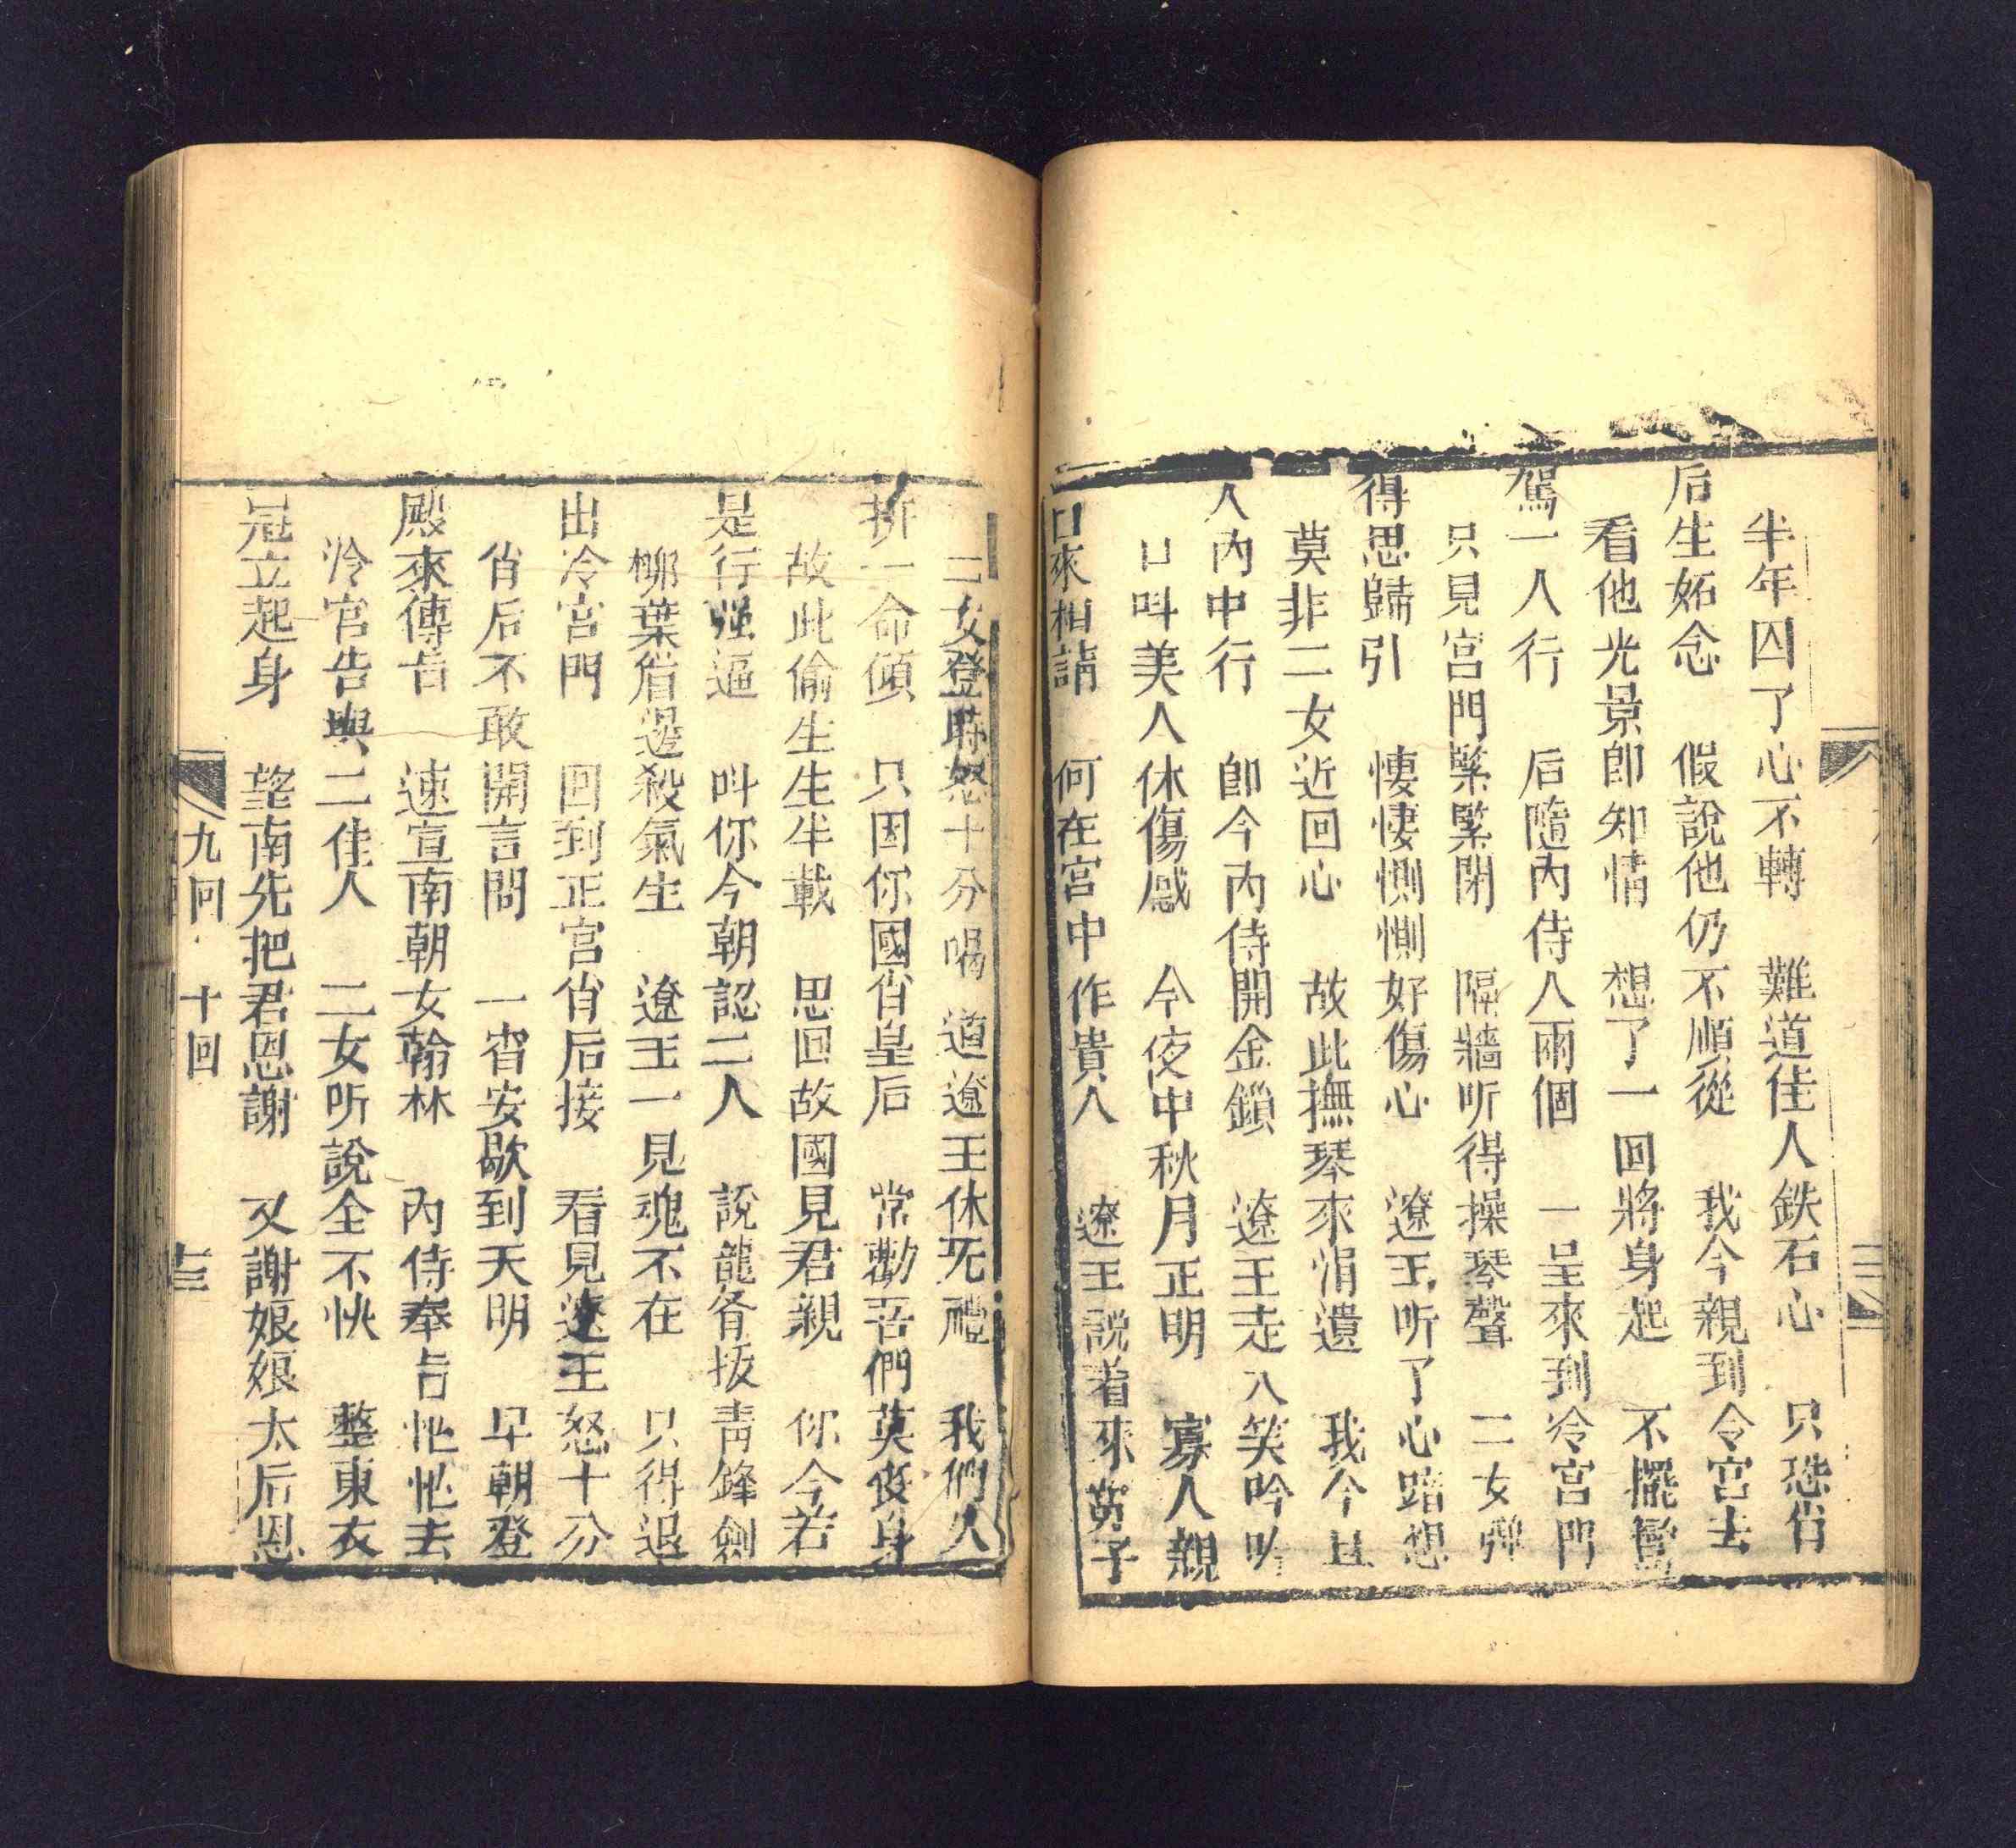 半年囚了心不轉 難道佳人鉄石心 只恐肖
后生妬念 假說他仍不順從 我今親到令宮去
看他光景卽知情 想了一回將身起 不擺鸞
駕一人行 后隨內侍人兩個 一呈來到冷宮門
只見宮門緊緊閉 隔牆听得操琴聲 二女彈
得思歸引 悽悽惻惻好傷心 遼王听了心暗想
莫非二女近回心 故此撫琴來消遺 我今且
入內中行 卽今內侍開金鎖 遼王走入笑吟吟
口叫美人休傷感 今夜中秋月正明 寡人親
口來相請 何在宮中作貴人 遼王說着來勇子
二女登時怒十分 喝道遼王休无禮 我們久
拚一命傾 只因你國肖皇后 常勸吾們莫喪身
故此偷生生半載 思回故國見君親 你今若
是行强逼 叫你今朝認二人 說龍各抜靑鋒劍
柳葉眉邊殺氣生 遼王一見魂不在 只得退
出冷宮門 回到正宮肖后接 看見遼王怒十分
肖后不敢開言問 一宵安歇到天明 早朝登
殿來傳旨 速宣南朝女翰林 內侍奉旨忙忙去
冷宮告與二佳人 二女听說全不快 整束衣
冠立起身 望南先把君恩謝 又謝娘娘太后恩
九回 十回 十三